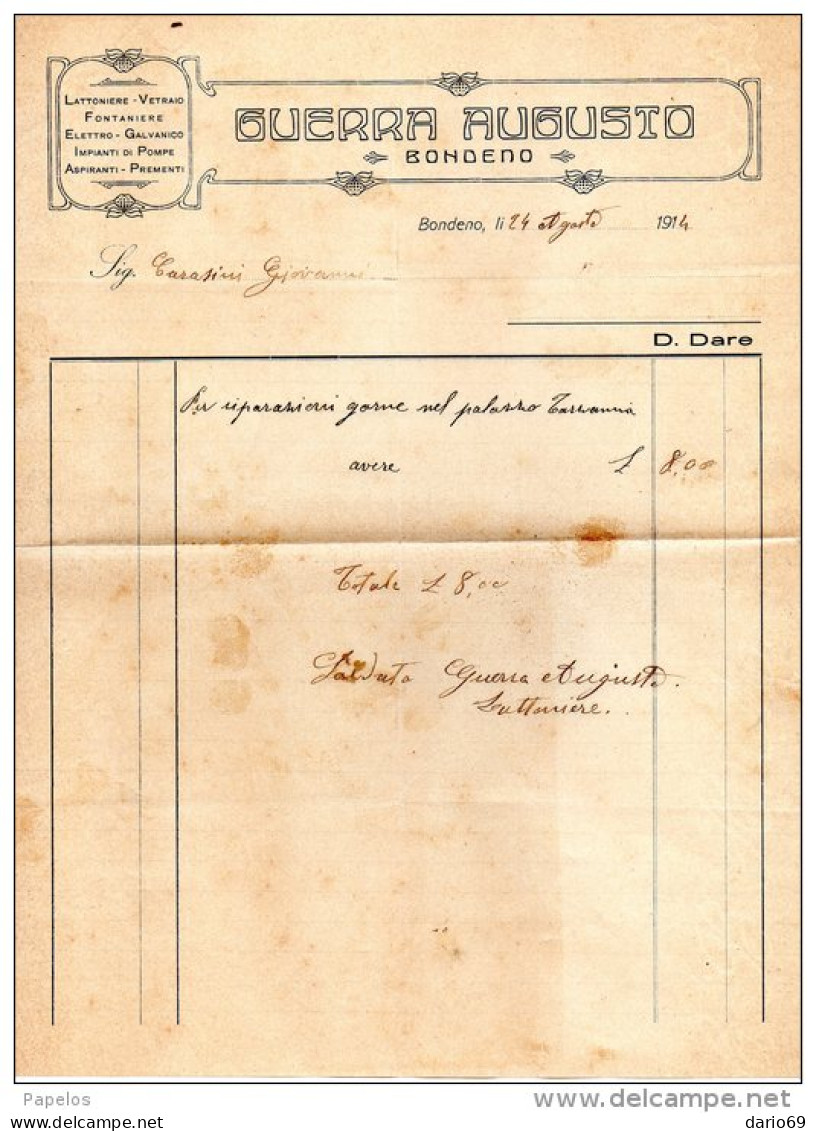 LATTONIERE - VETRAIO
FONTANIERE
ELETTRO - GALVANICO
IMPIANTI DI POMPE
ASPIRANTI - PREMENTI
GUERRA AUGUSTO
BONDENO
Bondeno, li 24 Agosto 1914
Sig. Carasini Giovanni
D. Dare
Per riparazioni gorne nel palazzo
avere £ 8,00
Totale £ 8,00
Saldato Guerra Augusto.
Lattoniere.
Papelos
www.delcampe.net
dario69